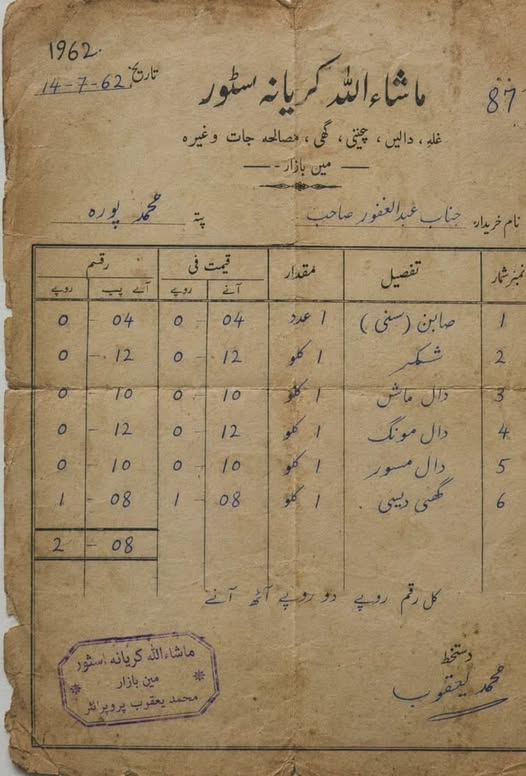 1962
تاریخ 14-7-62
87
ماشاءاللہ کریانہ سٹور
غلہ ، دالیں ، چینی ، گھی ، مصالحہ جات وغیرہ
مین بازار -
نام خریدار: جناب عبدالغفور صاحب پتہ محمد پورہ
نمبر شمار تفصیل مقدار قیمت فی رقم
آنے روپے آنے روپے
1 صابن ( ) 1 عدد 04 - 0 04 - 0
2 شکر 1 کلو 12 - 0 12 - 0
3 دال ماش 1 کلو 10 - 0 10 - 0
4 دال مونگ 1 کلو 12 - 0 12 - 0
5 دال مسور 1 کلو 10 - 0 10 - 0
6 گھی دیسی 1 کلو 08 - 1 08 - 1
08 - 2
کل رقم روپے دو روپے آٹھ آنے
دستخط
محمد یعقوب
ماشاءاللہ کریانہ اسٹور
مین بازار
محمد یعقوب پروپرائٹر